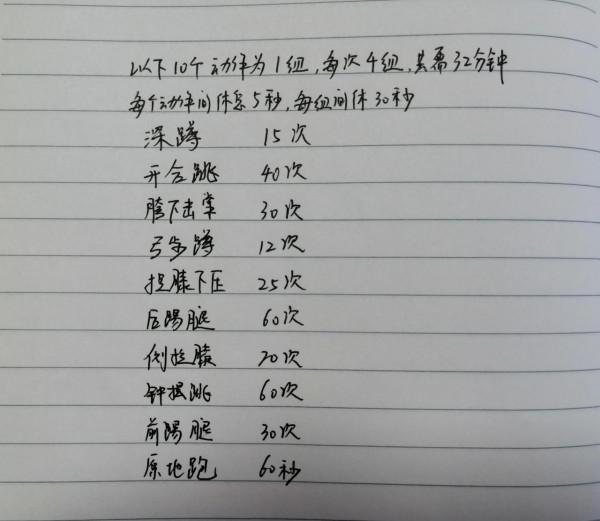 以下10个动作为1组,每次4组,共需32分钟
每个动作间休息5秒,每组间休30秒
深蹲 15次
开合跳 40次
胯下击掌 30次
弓步蹲 12次
提膝下压 25次
后踢腿 60次
侧提膝 20次
钟摆跳 60次
前踢腿 30次
原地跑 60秒